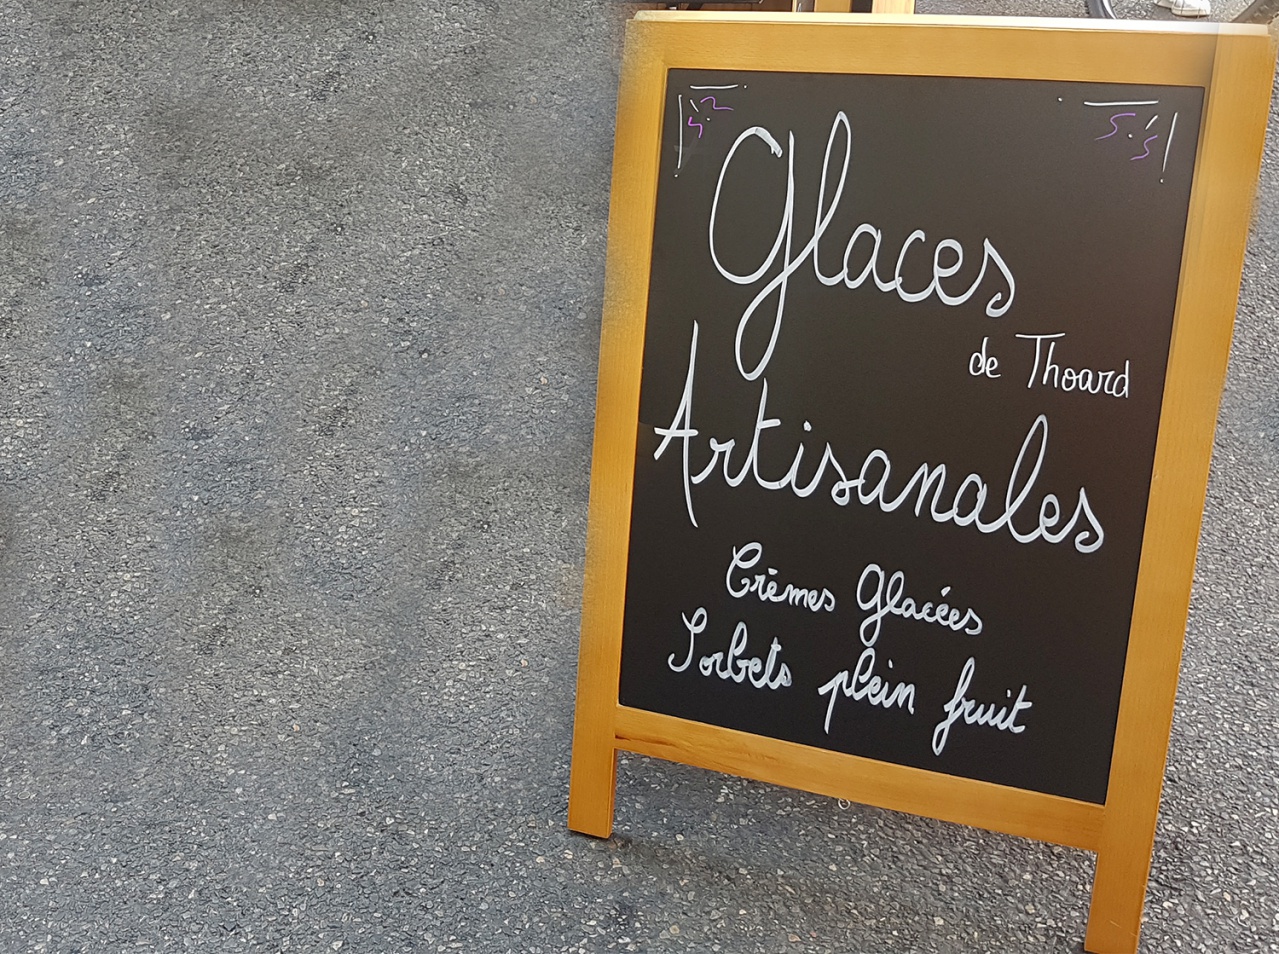 Glaces
de Thoard
Artisanales
Crèmes Glacées
Sorbets plein fruit